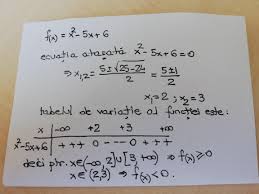 f(x) = x² - 5x + 6
ecuația atașată x² - 5x + 6 = 0
⇒ x₁,₂ = (5 ± √(25-24))/2 = (5 ± 1)/2
x₁ = 2 ; x₂ = 3
tabelul de variație al funcției este:
x | -∞ +2 +3 +∞
x²-5x+6 | + + + 0 - - - 0 + + +
deci ptr. x∈(-∞, 2]∪[3, +∞) ⇒ f(x) ≥ 0
x∈(2,3) ⇒ f(x) < 0.